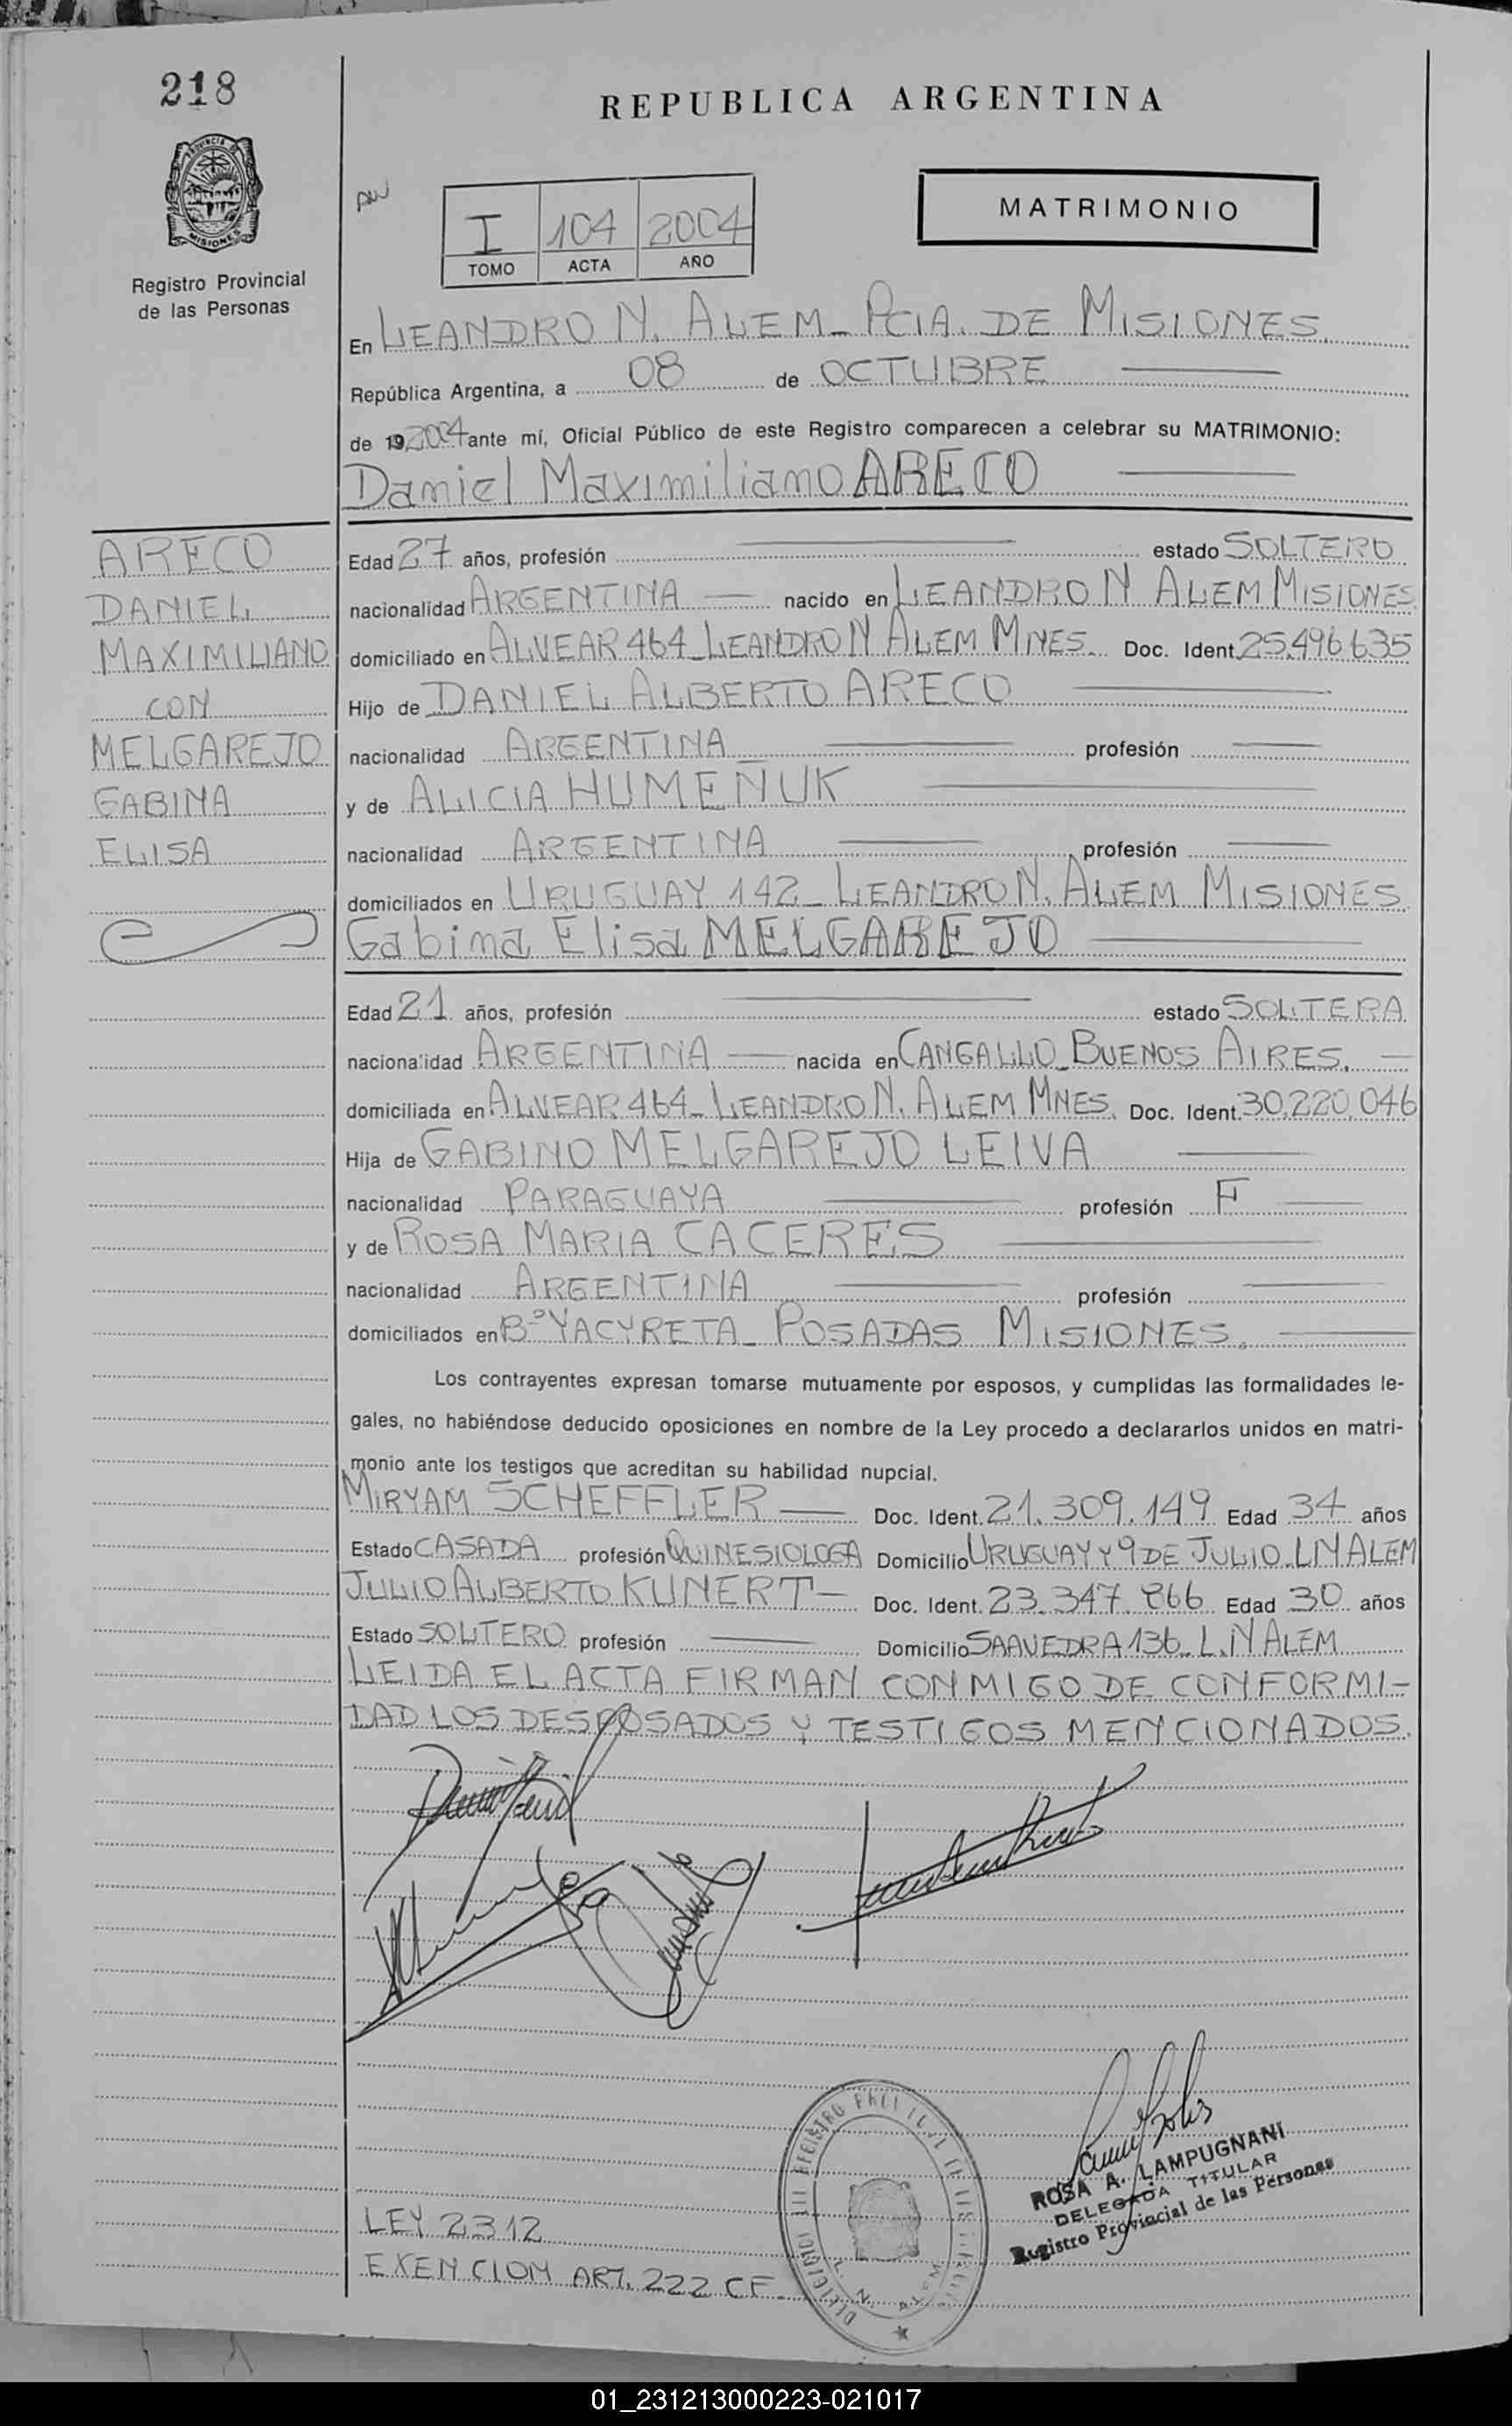 218
REPUBLICA ARGENTINA
PROVINCIA DE
MISIONES
Registro Provincial
de las Personas
I 104 2004
TOMO ACTA AÑO
MATRIMONIO
En LEANDRO N. ALEM_ PCIA. DE MISIONES.
República Argentina, a 08 de OCTUBRE
de 19 2004 ante mí, Oficial Público de este Registro comparecen a celebrar su MATRIMONIO:
Daniel Maximiliano ARECO
ARECO
DANIEL
MAXIMILIANO
CON
MELGAREJO
GABINA
ELISA
Edad 27 años, profesión — estado SOLTERO
nacionalidad ARGENTINA — nacido en LEANDRO N ALEM MISIONES
domiciliado en ALVEAR 464_LEANDRO N ALEM MNES. Doc. Ident. 25.496.635
Hijo de DANIEL ALBERTO ARECO
nacionalidad ARGENTINA — profesión —
y de ALICIA HUMEÑUK
nacionalidad ARGENTINA — profesión —
domiciliados en URUGUAY 142_ LEANDRO N. ALEM MISIONES
Gabina Elisa MELGAREJO
Edad 21 años, profesión — estado SOLTERA
nacionalidad ARGENTINA — nacida en CANGALLO_BUENOS AIRES. —
domiciliada en ALVEAR 464_ LEANDRO N. ALEM MNES. Doc. Ident. 30.220.046
Hija de GABINO MELGAREJO LEIVA —
nacionalidad PARAGUAYA — profesión F —
y de ROSA MARIA CACERES —
nacionalidad ARGENTINA — profesión —
domiciliados en Bº YACYRETA_ POSADAS MISIONES. —
Los contrayentes expresan tomarse mutuamente por esposos, y cumplidas las formalidades le-
gales, no habiéndose deducido oposiciones en nombre de la Ley procedo a declararlos unidos en matri-
monio ante los testigos que acreditan su habilidad nupcial.
MIRYAM SCHEFFLER — Doc. Ident. 21.309.149 Edad 34 años
Estado CASADA profesión QUINESIOLOGA Domicilio URUGUAY Y 9 DE JULIO L N ALEM
JULIO ALBERTO KUNERT — Doc. Ident. 23.347.866 Edad 30 años
Estado SOLTERO profesión — Domicilio SAAVEDRA 136_ L.N ALEM
LEIDA EL ACTA FIRMAN CONMIGO DE CONFORMI-
DAD LOS DESPOSADOS Y TESTIGOS MENCIONADOS.
ROSA A. LAMPUGNANI
DELEGADA TITULAR
Registro Provincial de las Personas
LEY 2312
EXENCION ART. 222 CF.
01_231213000223-021017